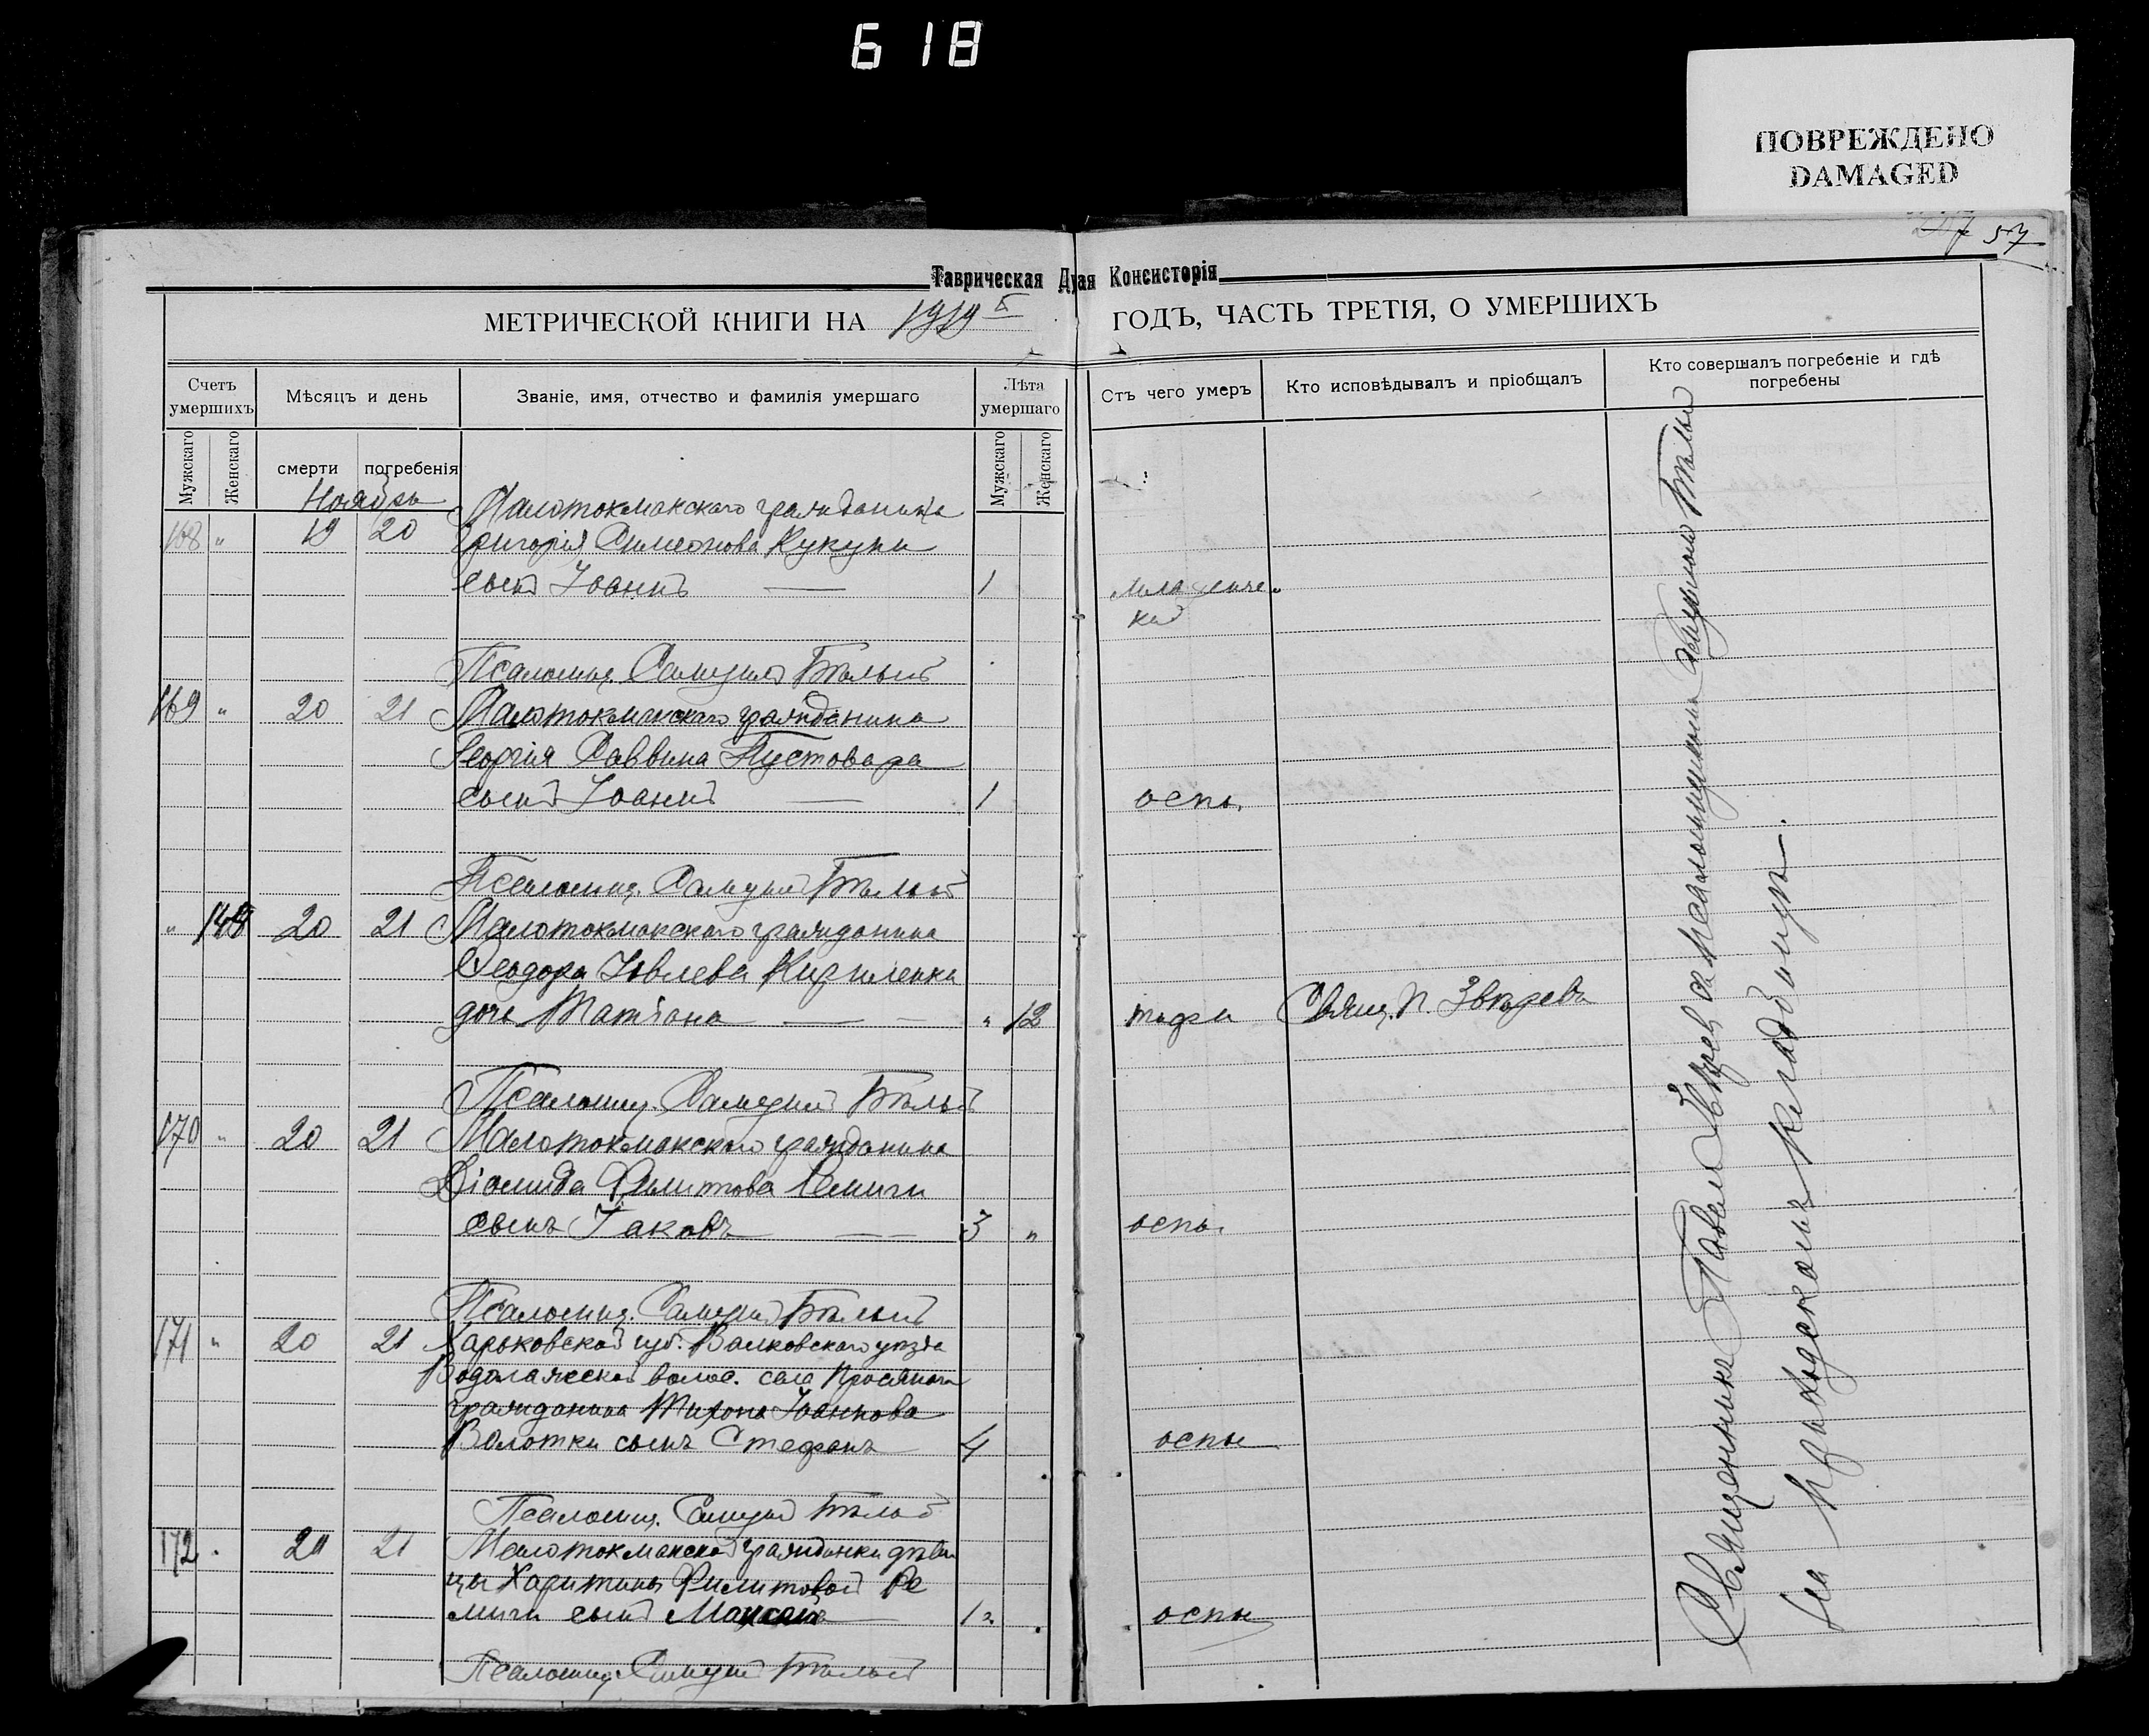 618
ПОВРЕЖДЕНО
DAMAGED
57
Таврическая Д ая Консисторія
МЕТРИЧЕСКОЙ КНИГИ НА 1919 ГОДЪ, ЧАСТЬ ТРЕТІЯ, О УМЕРШИХЪ
Счетъ умершихъ
Мѣсяцъ и день
Званіе, имя, отчество и фамилія умершаго
Лѣта умершаго
Отъ чего умеръ
Кто исповѣдывалъ и пріобщалъ
Кто совершалъ погребеніе и гдѣ погребены
Мужскаго
Женскаго
смерти
погребенія
Мужскаго
Женскаго
Ноябрь
Малотокмакскаго гражданина
168 " 19 20 Григорія Симеонова Кукуни
сынъ Іоаннъ — 1 младенче-
ской
Псаломщ. Самуилъ Бѣлый
169 " 20 21 Малотокмакскаго гражданина
Георгія Саввина Пустовара
сынъ Іоаннъ — 1 оспы
Псаломщ. Самуилъ Бѣлый
" 148 20 21 Малотокмакскаго гражданина
Ѳеодора Іовлева Кириленка
дочь Татіана — " 12 тифа Свящ. П. Звѣревъ
Псаломщ. Самуилъ Бѣлый
170 " 20 21 Малотокмакскаго гражданина
Діомида Филитова Ремиги
сынъ Іаковъ — 3 " оспы
Псаломщ. Самуилъ Бѣлый
171 " 20 21 Харьковской губ. Валковскаго уѣзда
Водолажской волос. села Просянаго
гражданина Тихона Іоаннова
Волотки сынъ Стефанъ 4 оспы
Псаломщ. Самуилъ Бѣлый
172 20 21 Малотокмакской гражданки дѣви
цы Харитины Филитовой Ре
миги сынъ — оспы
Псаломщ. Самуилъ Бѣлый
Священникъ Павелъ Звѣревъ съ псаломщикомъ Самуиломъ Бѣлымъ
на приходскомъ кладбищѣ.